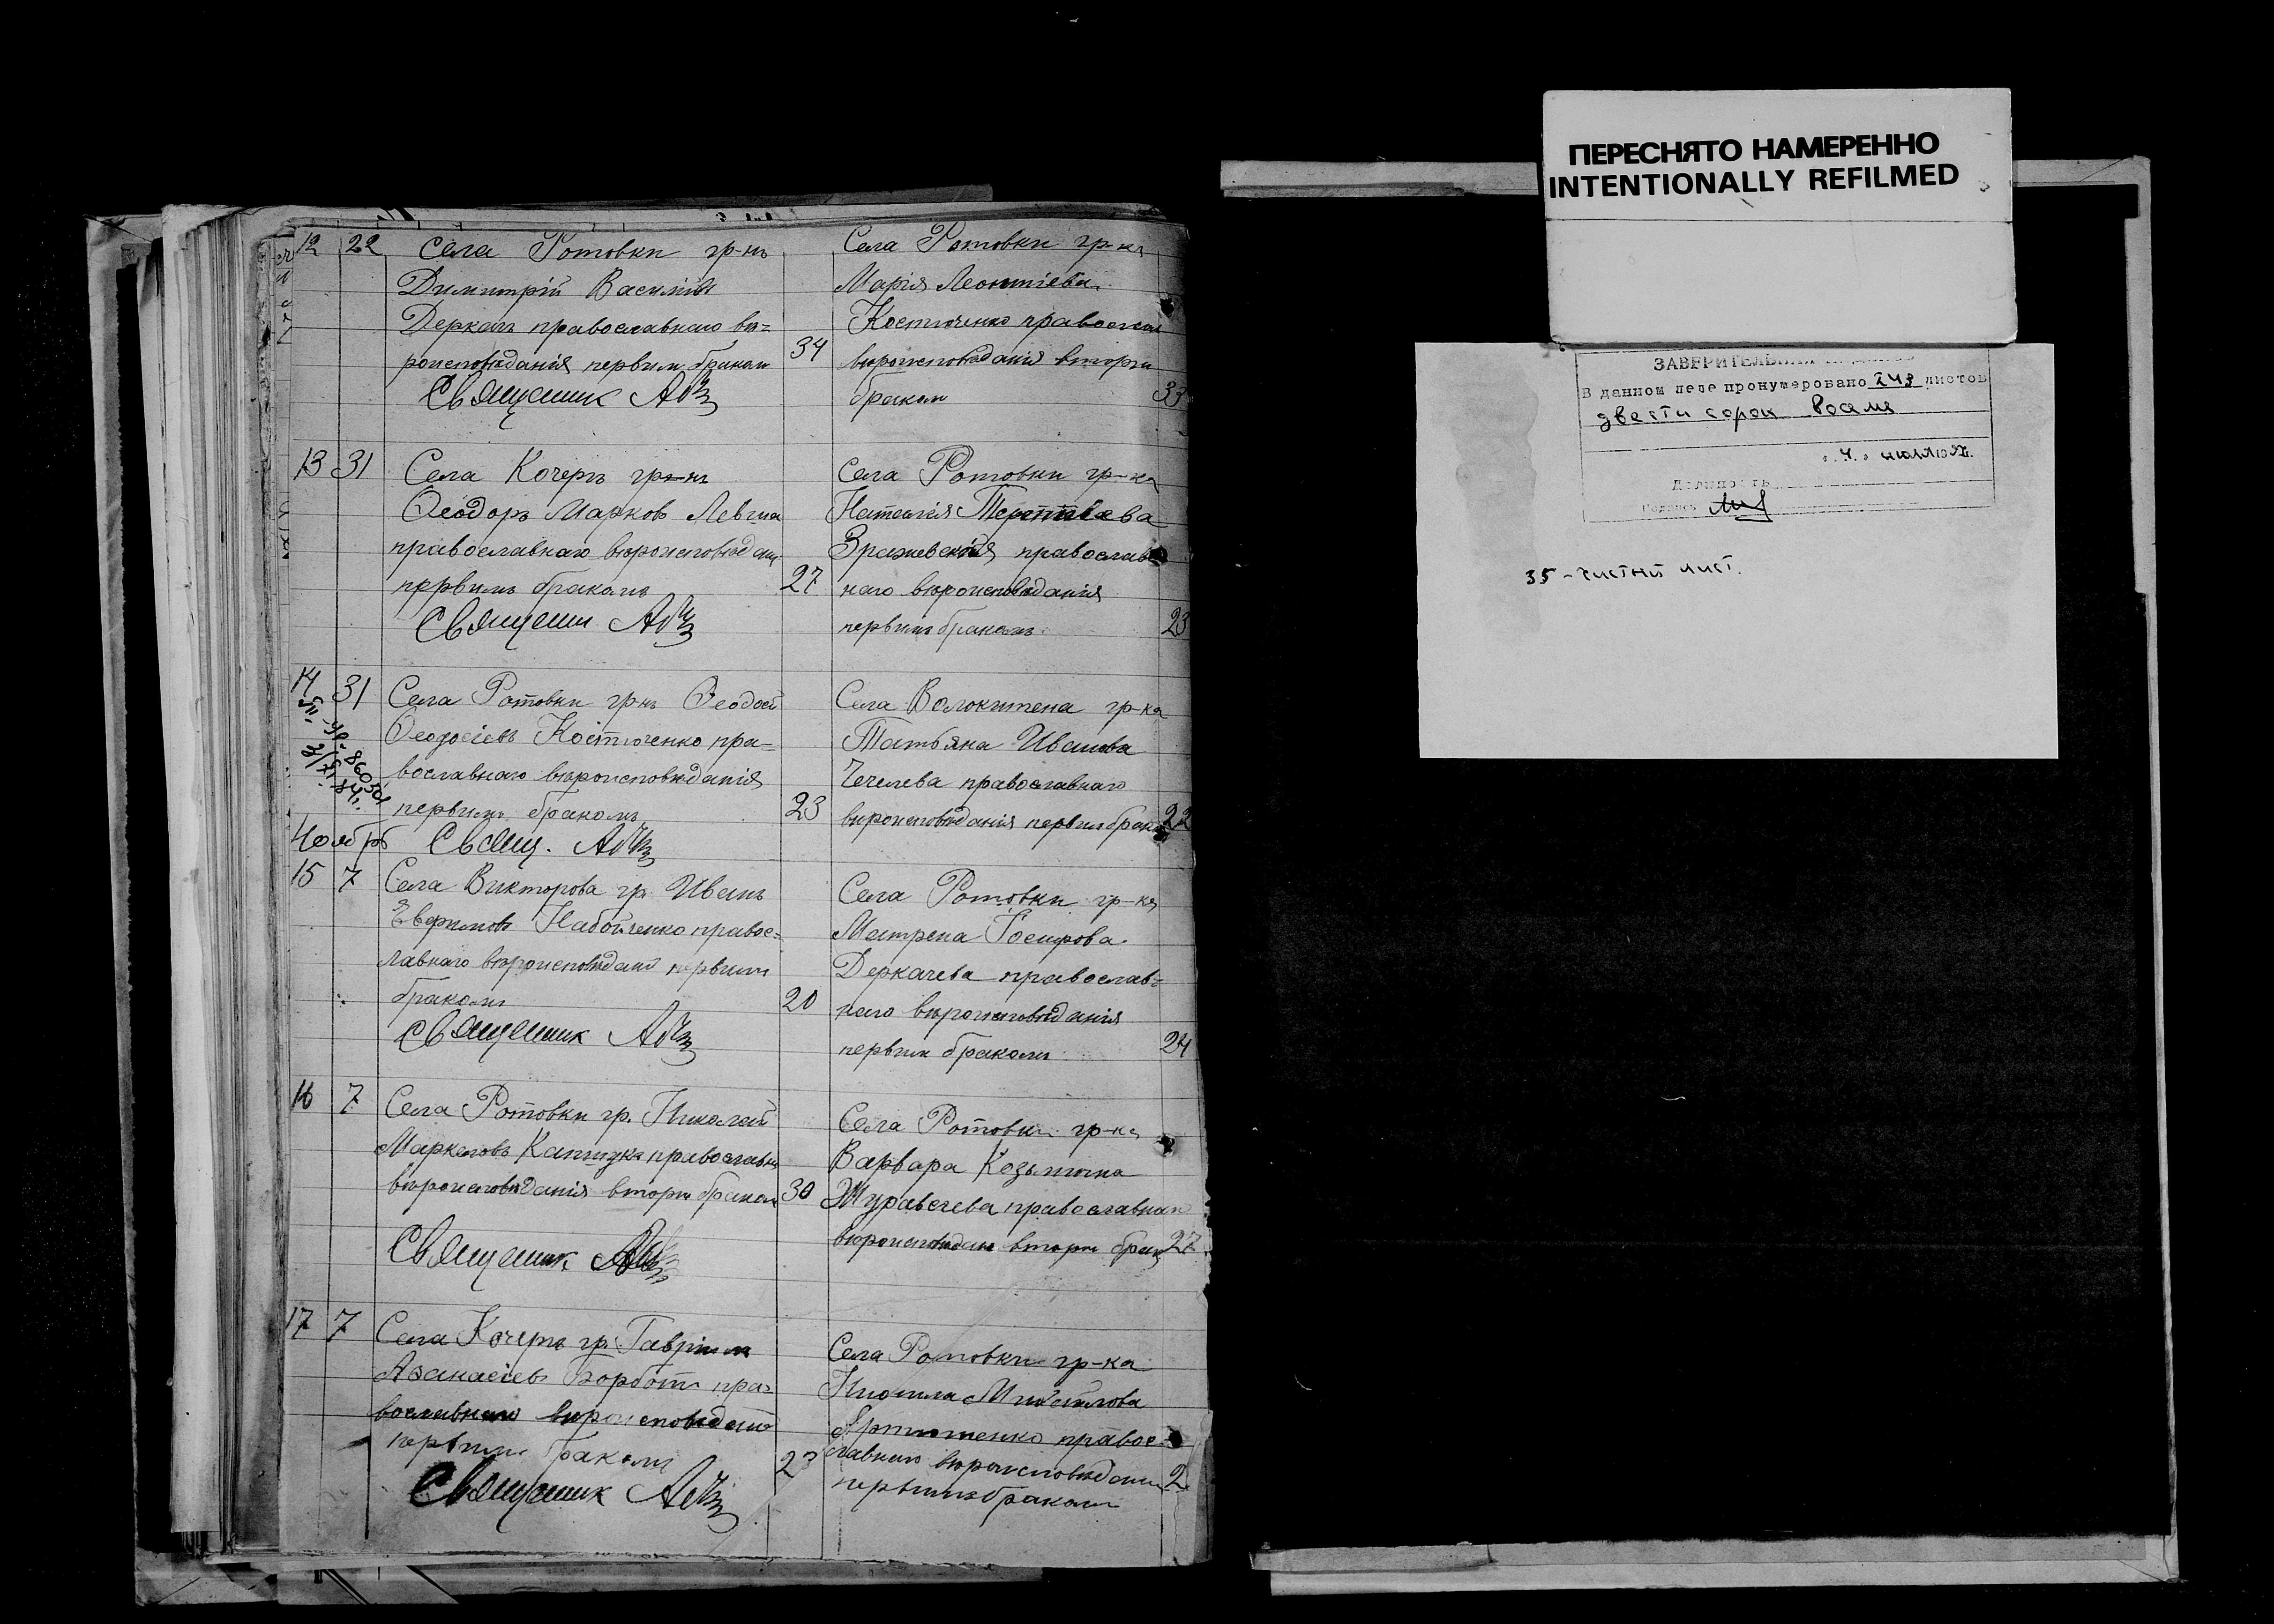 12 22 Села Ротовки гр-нъ
Димитрій Василіевъ
Деркачъ православнаго вѣ=
роисповѣданія первым браком 34
Священник
Села Ротовки гр-ка
Марія Леонтіева
Костюченко православ
вѣроисповѣданія вторым
браком 33
13 31 Села Кочергъ гр-нъ
Ѳеодоръ Марковъ Левша
православнаго вѣроисповѣдан
первымъ бракомъ 27
Священник
Села Ротовки гр-ка
Наталія Терентіева
Зражевская православ=
наго вѣроисповѣданія
первымъ бракомъ 23
14 31 Села Ротовки гр-нъ Ѳеодосій
Ѳеодосіевъ Костюченко пра=
вославнаго вѣроисповѣданія
первымъ бракомъ 23
Свящ.
Села Волокитена гр-ка
Татьяна Иванова
Чечелева православнаго
вѣроисповѣданія первым брако 22
Ноябрь
15 7 Села Викторова гр. Иванъ
Евфимовъ Набойченко правос=
лавнаго вѣроисповѣданія первымъ
бракомъ 20
Священник
Села Ротовки гр-ка
Матрена
Деркачева православ=
наго вѣроисповѣданія
первым бракомъ 24
16 7 Села Ротовки гр. Николай
Маркеловъ православна
вѣроисповѣданія вторым браком 30
Священник
Села Ротовки гр-ка
Варвара Козьмина
Журавлева православнаго
вѣроисповѣдан вторым брак 27
17 7 Села Кочергъ гр. Гавріилъ
Аѳанасіевъ пра=
вославнаго вѣроисповѣдан
первымъ бракомъ 23
Священник
Села Ротовки гр-ка
Михайлова
Артюшенко правос=
лавнаго вѣроисповѣдан
первымъ браком 2
ПЕРЕСНЯТО НАМЕРЕННО
INTENTIONALLY REFILMED
ЗАВЕРИТЕЛЬНАЯ
В данном деле пронумеровано 248 листов
двести сорок восемь
"4" июля
Должность
Подпись
35 - чистый лист.